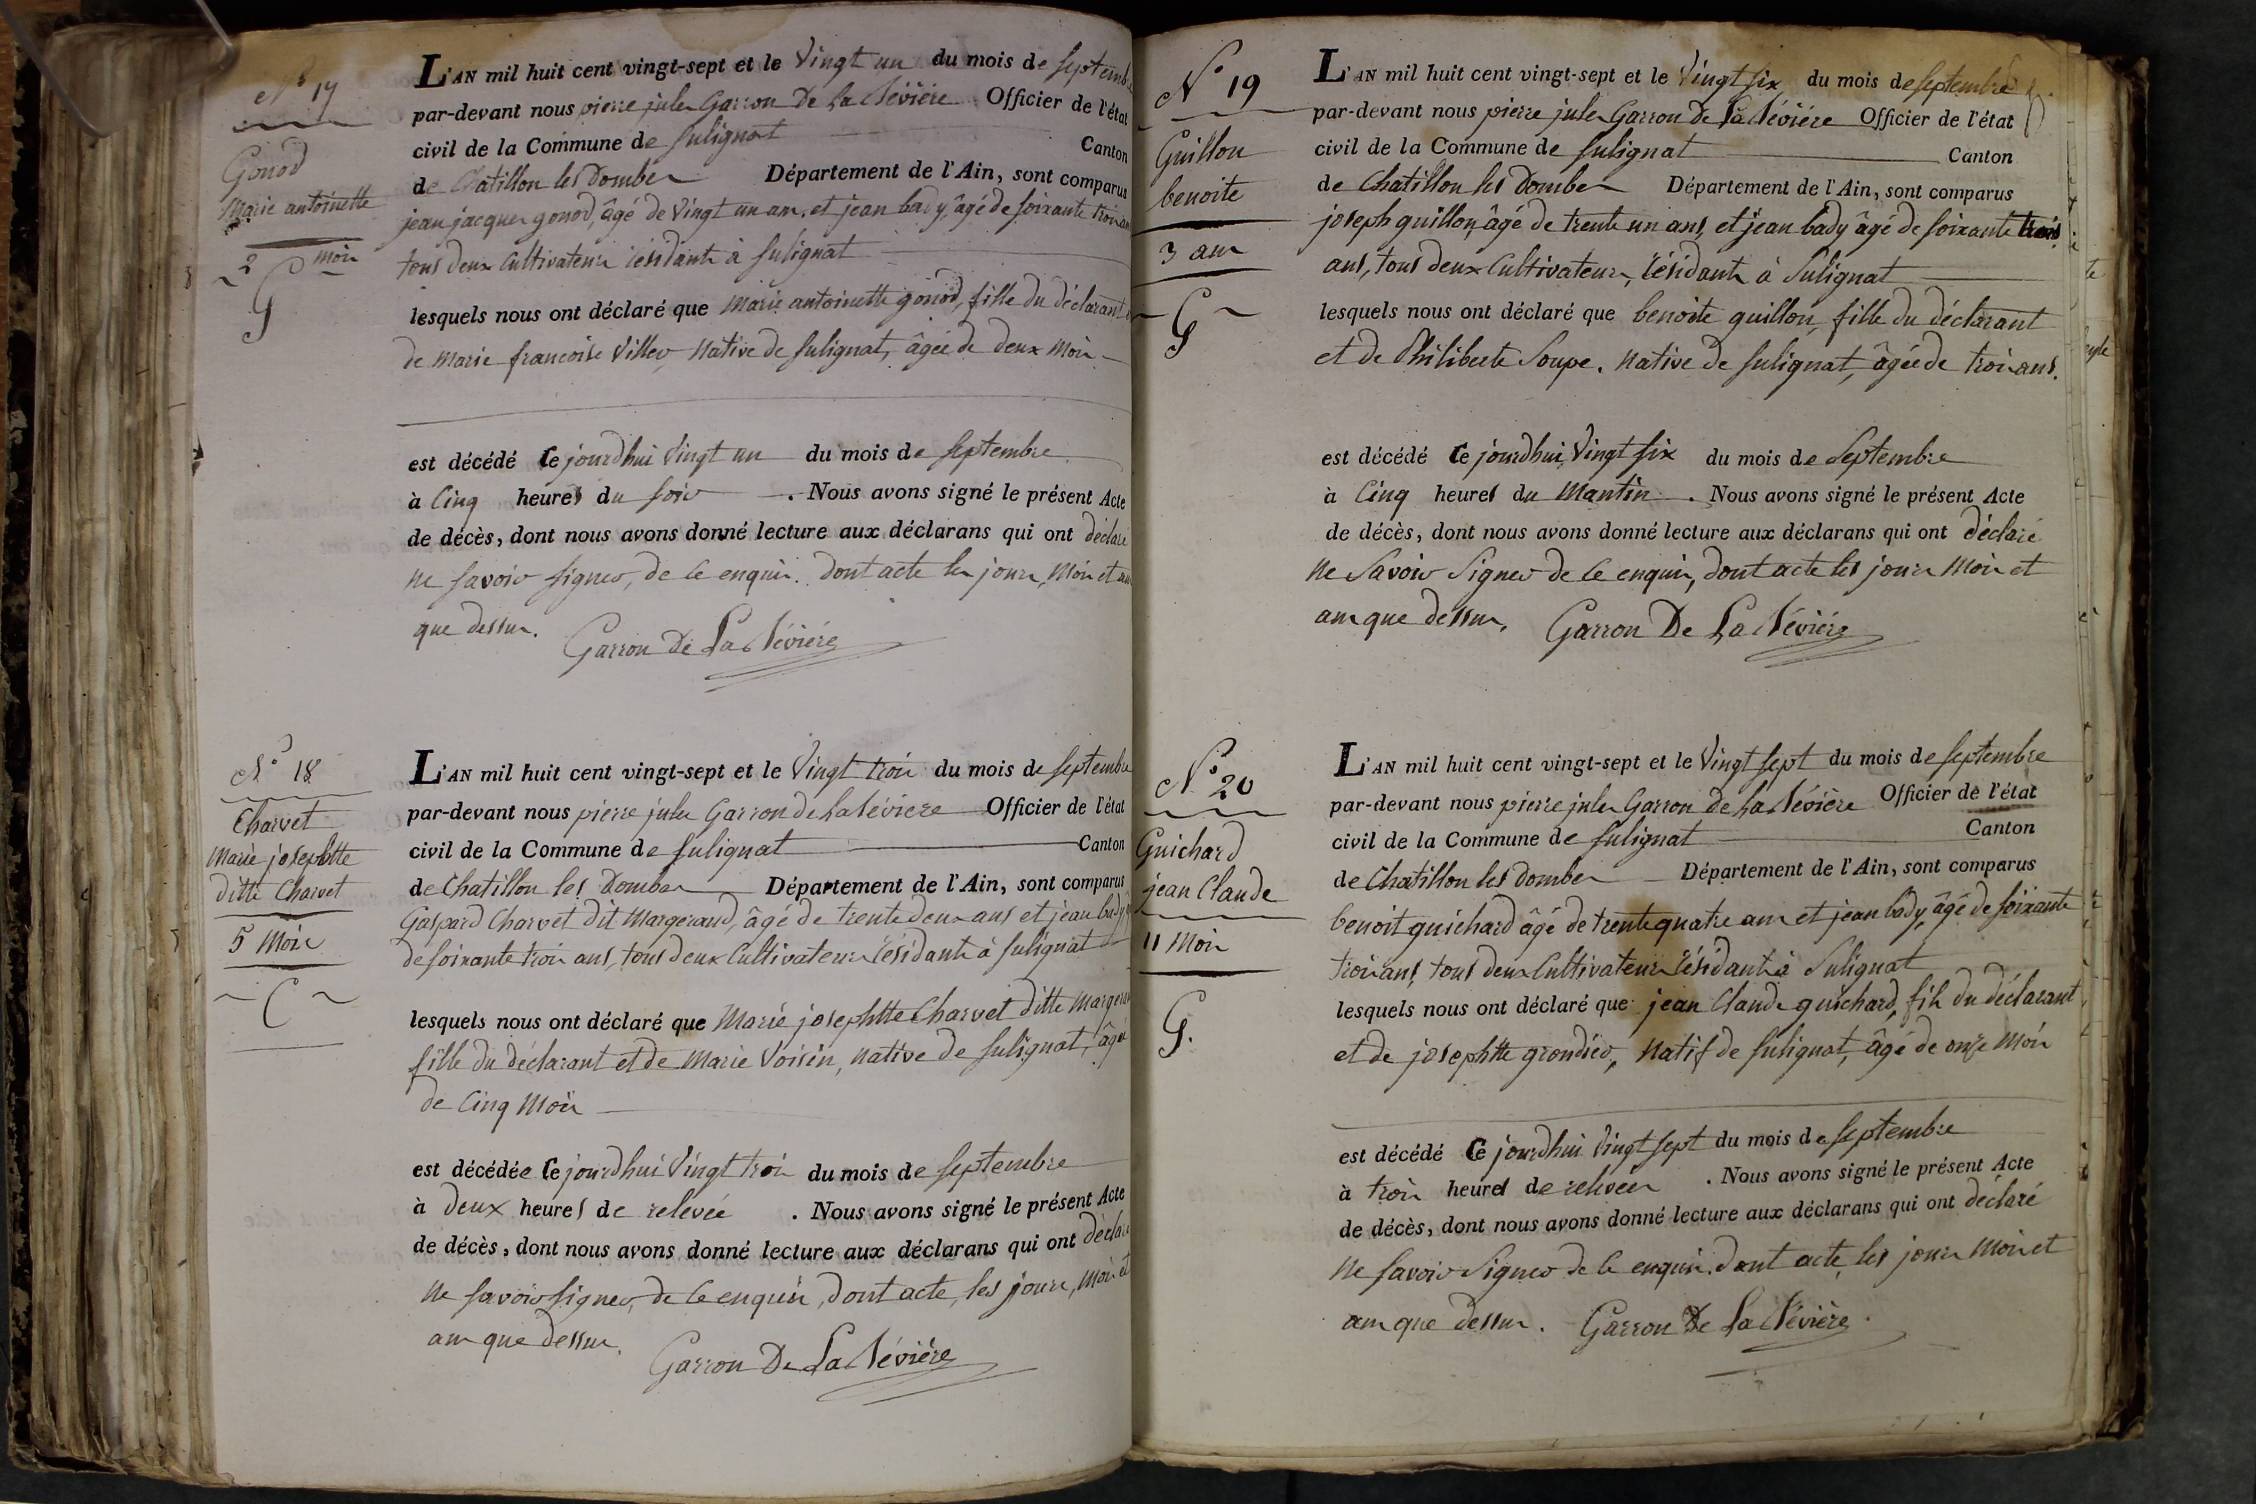 N° 17
Gonod
Marie antoinette
2 mois
G
L'AN mil huit cent vingt-sept et le Vingt un du mois de septembre
par-devant nous pierre jules Garron De La Bévière Officier de l'état
civil de la Commune de sulignat Canton
de Chatillon les Dombes Département de l'Ain, sont comparus
jean jacques gonod, âgé de Vingt un ans, et jean bady, âgé de soixante trois ans
tous deux Cultivateurs résidants à sulignat
lesquels nous ont déclaré que Marie antoinette gonod, fille du déclarant et
de marie francoise Viller, Native de sulignat, âgée de deux Mois
est décédé Ce jourdhui Vingt un du mois de septembre
à Cinq heures du soir . Nous avons signé le présent Acte
de décès, dont nous avons donné lecture aux déclarans qui ont déclaré
ne savoir signer, de ce enquis. dont acte les jours, Mois et an
que dessus.
Garron De La Bévière
N° 18
Charvet
Marie josephtte
ditte Charvet
5 Mois
C
L'AN mil huit cent vingt-sept et le Vingt trois du mois de septembre
par-devant nous pierre jules Garron de la Bévière Officier de l'état
civil de la Commune de sulignat Canton
de Chatillon les Dombes Département de l'Ain, sont comparus
Gaspard Charvet dit Margerand, âgé de trente deux ans et jean bady
de soixante trois ans, tous deux Cultivateurs résidants à sulignat
lesquels nous ont déclaré que Marie josephtte Charvet ditte Margerand
fille du déclarant et de Marie Voisin, native de sulignat, âgée
de Cinq Mois
est décédée Ce jourdhui Vingt trois du mois de septembre
à deux heures de relévée . Nous avons signé le présent Acte
de décès, dont nous avons donné lecture aux déclarans qui ont déclaré
ne savoir signer, de ce enquis, dont acte, les jours, Mois et
an que dessus.
Garron De La Bévière
N° 19
Guillon
benoite
3 ans
G
L'AN mil huit cent vingt-sept et le Vingt six du mois de septembre
par-devant nous pierre jules Garron de La Bévière Officier de l'état
civil de la Commune de sulignat Canton
de Chatillon les Dombes Département de l'Ain, sont comparus
joseph guillon, âgé de trente un ans, et jean bady âgé de soixante trois
ans, tous deux Cultivateurs, résidants à Sulignat
lesquels nous ont déclaré que benoite guillon, fille du déclarant
et de Philiberte Soupe. native de sulignat, âgée de trois ans.
est décédé Ce jourdhui Vingt six du mois de Septembre
à Cinq heures du Mantin . Nous avons signé le présent Acte
de décès, dont nous avons donné lecture aux déclarans qui ont déclaré
ne Savoir Signer de ce enquis, dont acte les jours Mois et
an que dessus.
Garron De La Bévière
N° 20
Guichard
jean Claude
11 Mois
G.
L'AN mil huit cent vingt-sept et le Vingt sept du mois de septembre
par-devant nous pierre jules Garron de La Bévière Officier de l'état
civil de la Commune de sulignat Canton
de Chatillon les Dombes Département de l'Ain, sont comparus
benoit guichard âgé de trente quatre ans et jean bady, âgé de soixante
trois ans, tous deux Cultivateurs résidants à Sulignat
lesquels nous ont déclaré que jean Claude guichard, fils du déclarant
et de josephtte grondier, Natif de sulignat, âgé de onze Mois
est décédé Ce jourdhui Vingt sept du mois de septembre
à trois heures de relevée . Nous avons signé le présent Acte
de décès, dont nous avons donné lecture aux déclarans qui ont déclaré
ne savoir Signer de ce enquis. dont acte, les jours Mois et
an que dessus. Garron De La Bévière